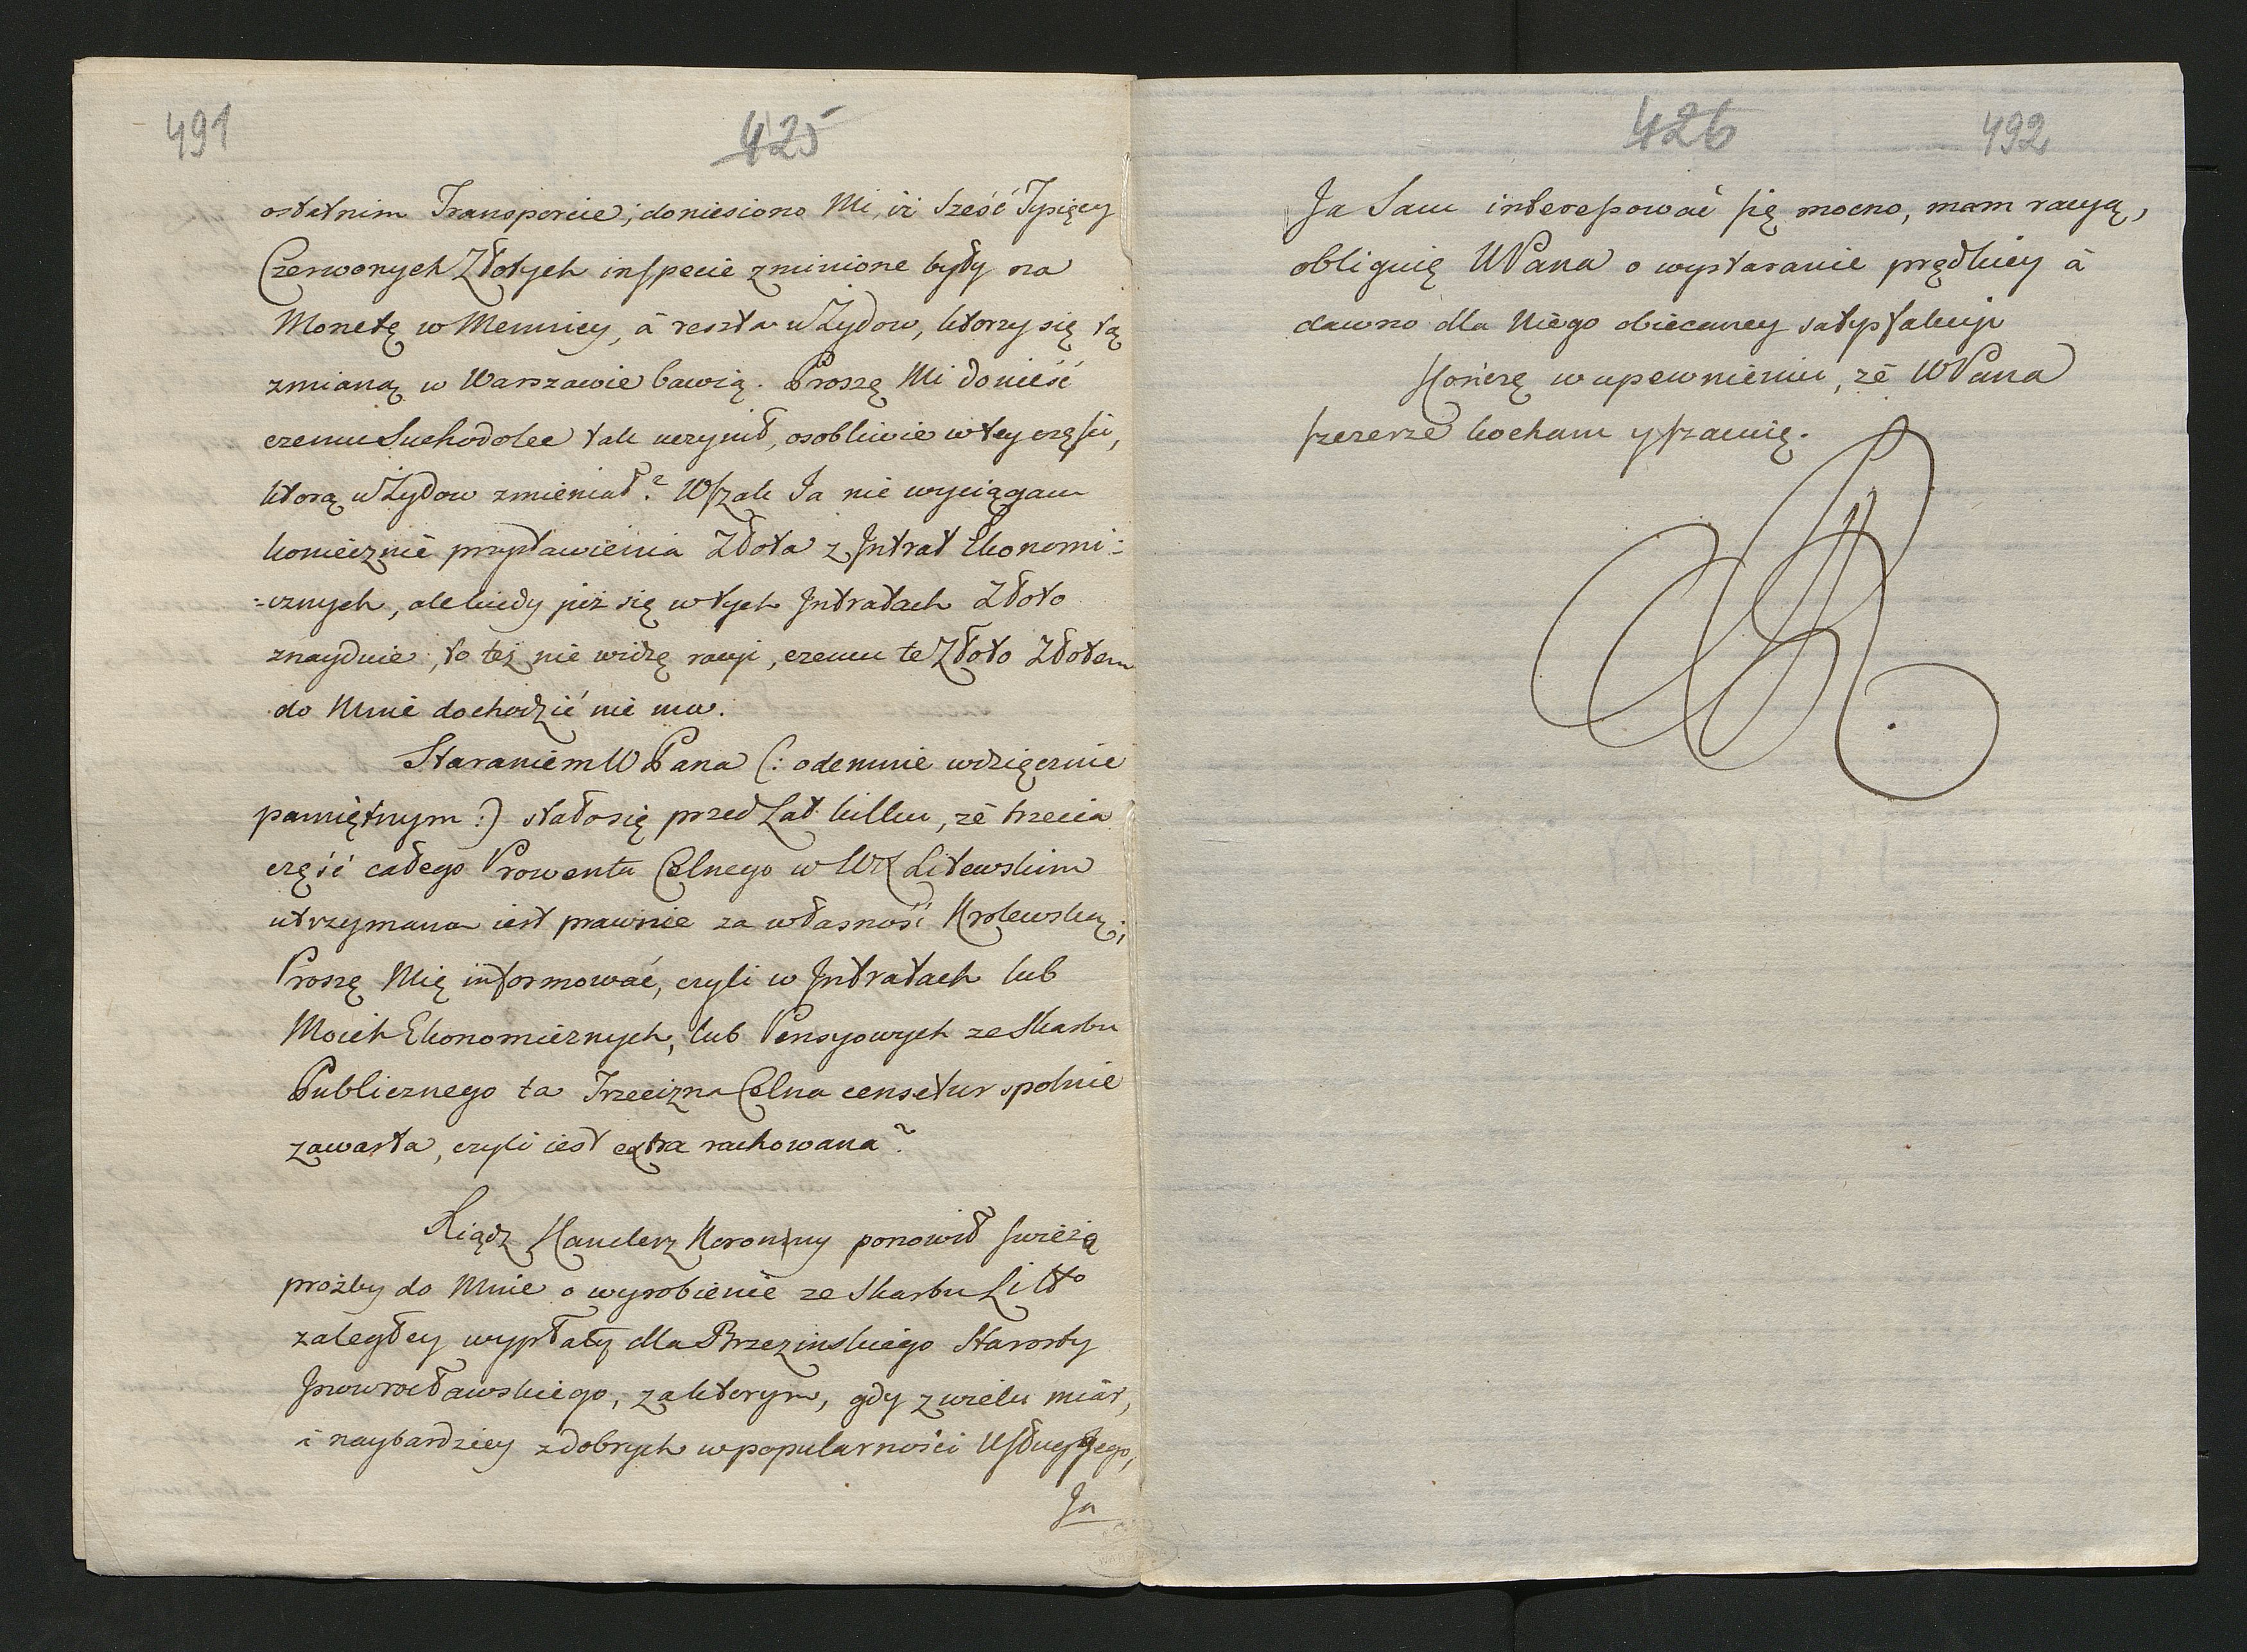 491
425
ostatnim Transporcie; doniesiono Mi, iż Sześć Tysięcy
Czerwonych Złotych in specie zminione były na
Monetę w Mennicy, à reszta u Żydow, ktorzy się tą
zmianą w Warszawie bawią. Proszę Mi donieść
czemu Suchodolec tak uczynił, osobliwie w tey części,
ktorą u Żydow zmieniał? Wszak Ja nie wyciągam
koniecznie przystawienia Złota z Jntrat Ekonomi=
=cznych, ale kiedy już się w tych Jntratach Złoto
znayduie, to też nie widzę racyi, czemu te Złoto Złotem
do Mnie dochodzić nie ma.
Staraniem WPana (: odemnie wdzięcznie
pamiętnym :) stało się przed Lat kilku, że trzecia
część całego Prowentu Celnego w WX Litewskim
utrzymana iest prawnie za własność Krolewską;
Proszę Mię informować, czyli w Jntratach lub
Moich Ekonomicznych, lub Pensyowych ze Skarbu
Publicznego ta Trzecizna Celna censetur spolnie
zawarta, czyli iest extra rachowana?
Xiądz Kanclerz Koronny ponowił swieżą
prożby do Mnie o wyrobienie ze Skarbu Litto
zaległey wypłaty dla Brzezinskiego Starosty
Jnowrocławskiego, za ktorym, gdy z wielu miar,
i naybardziey z dobrych w popularności Usług Jego,
Ja
426
492
Ja Sam interessować się mocno, mam racyą,
obliguię WPana o wystaranie prędkiey à
dawno dla Niego obiecaney satysfakcyi
Kończę w upewnieniu, że WPana
szczerze kocham y szacuię.